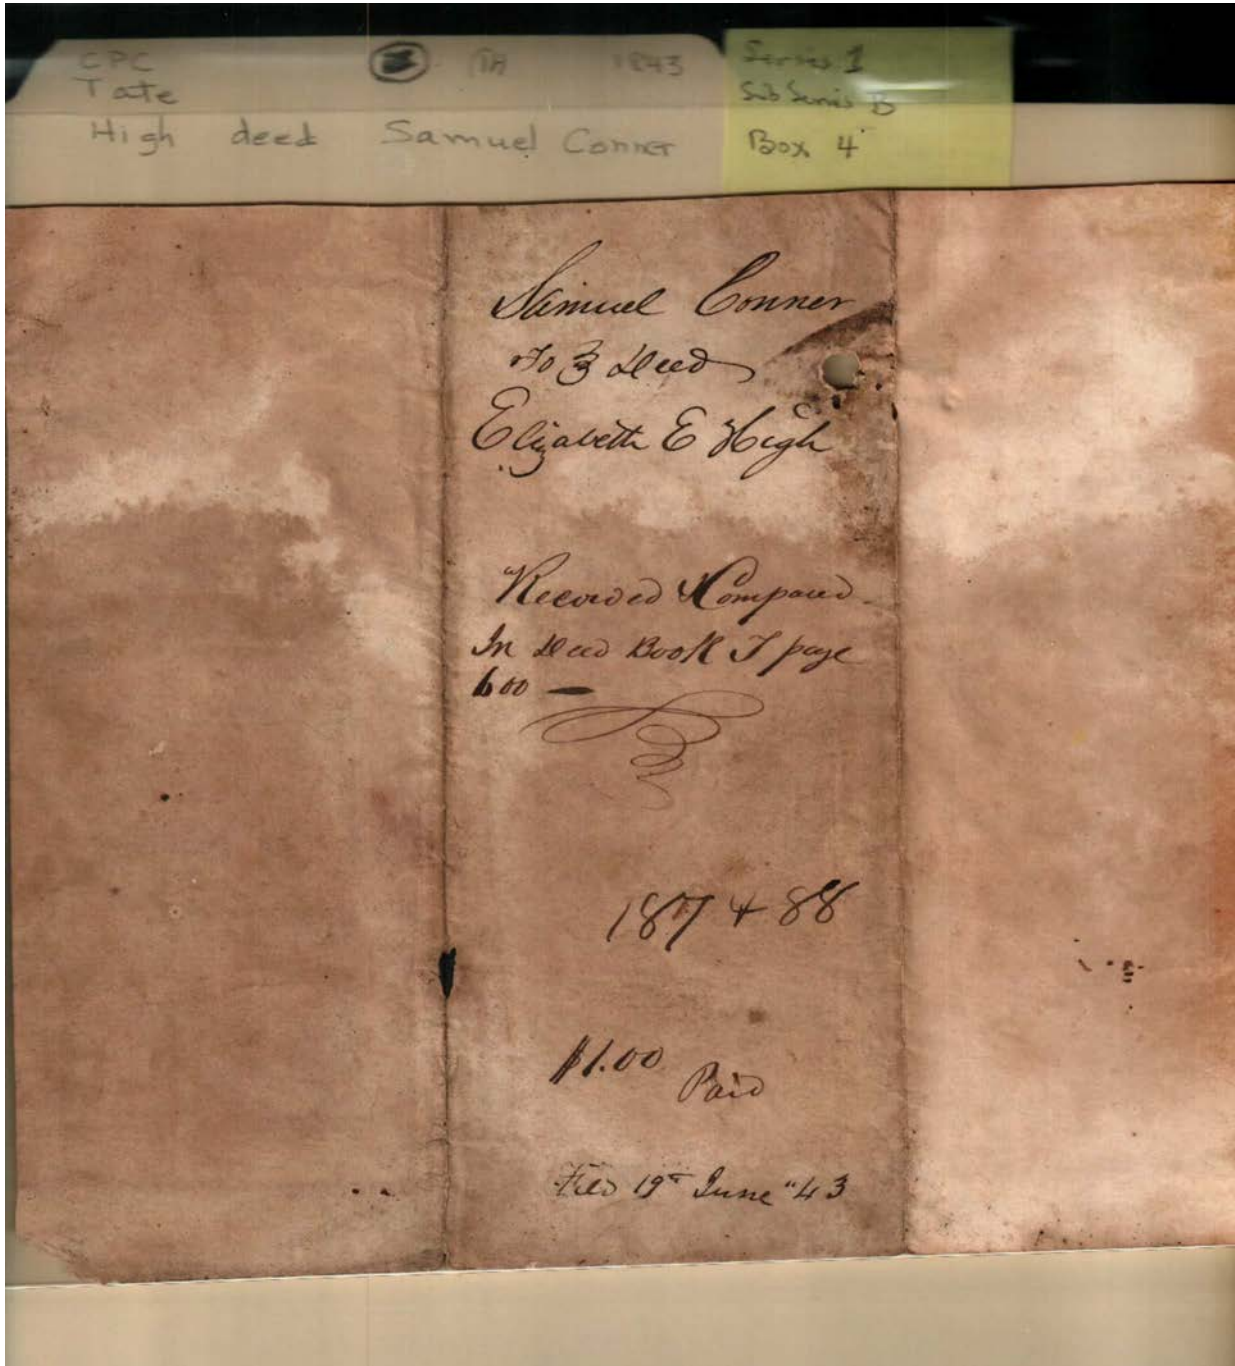 CPC 2 1A 1843
Tate
High deed Samuel Conner
Series 1
Sub Series B
Box 4
Samuel Conner
To } Deed
Elizabeth E High
Recorded & Compared
In Deed Book I page
600 —
187 & 88
$1.00 Paid
Filed 19th June "43